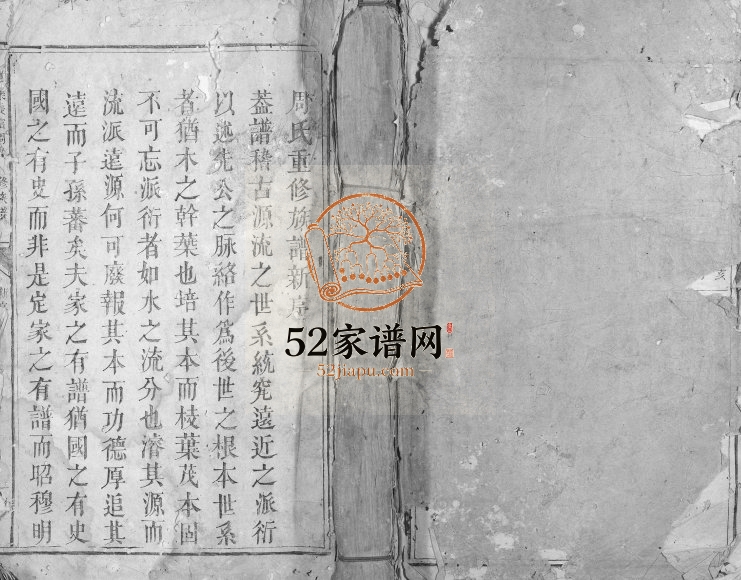 周氏重修族譜新序
葢譜稽古源流之世系統究遠近之派衍
以述先公之脉絡作爲後世之根本世系
者猶木之幹葉也培其本而枝葉茂本固
不可忘派衍者如水之流分也濬其源而
流派遠源何可廢報其本而功德厚追其
遠而子孫蕃矣夫家之有譜猶國之有史
國之有史而非是定家之有譜而昭穆明
52家谱网
52jiapu.com